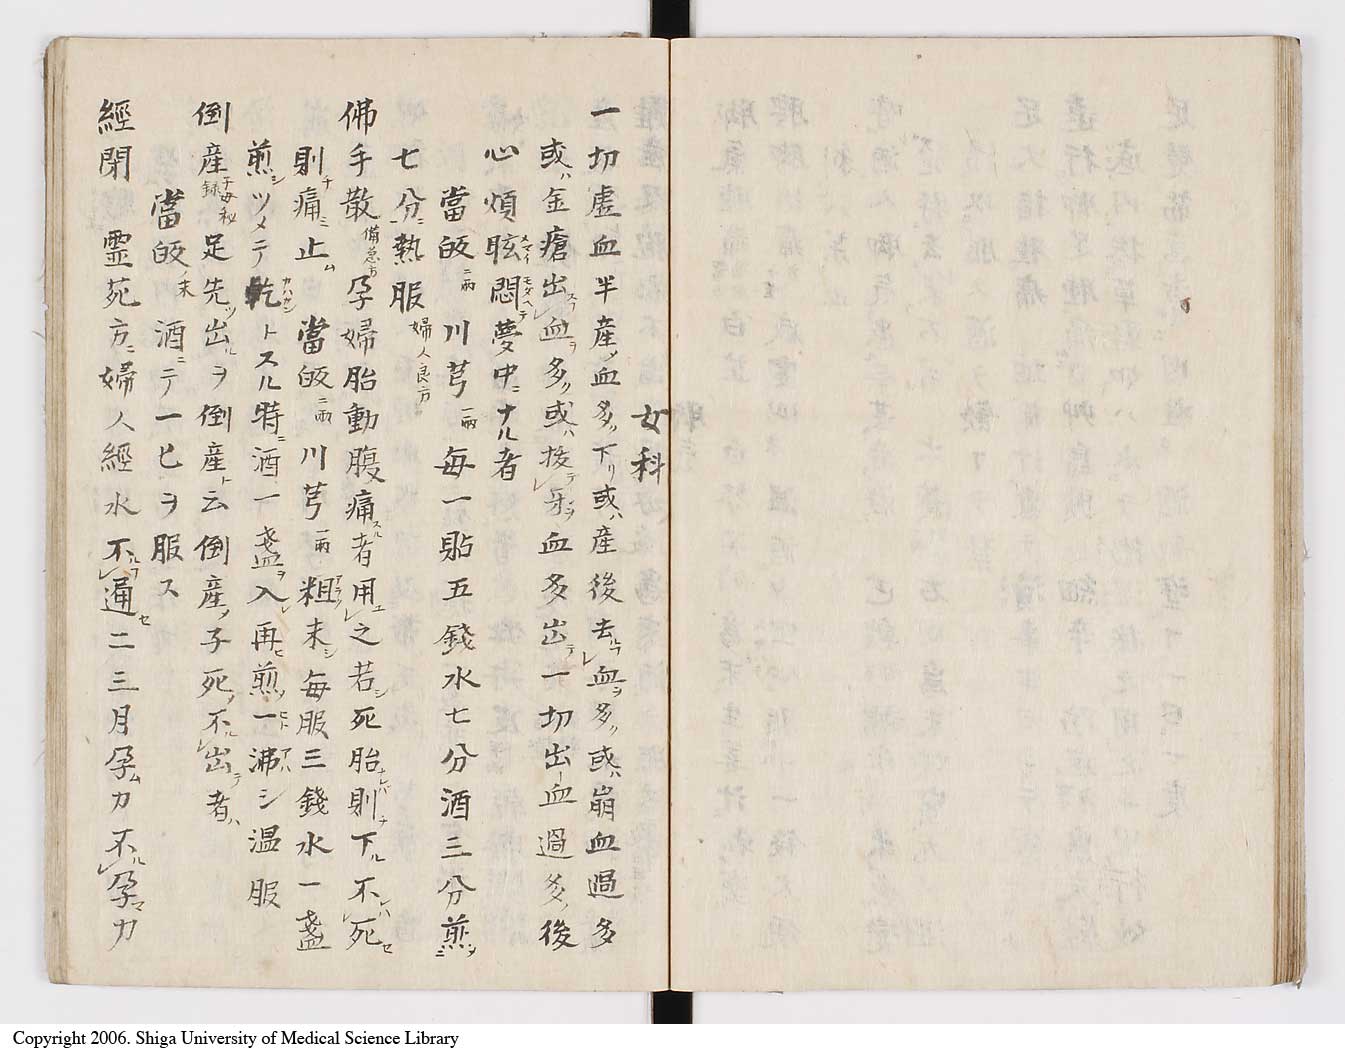 女科
一切虚血半産ノ血多ク下リ或ハ産後去ルフ血ヲ多ク或ハ崩血過多
或ハ金瘡出スフ血ヲ多ク或ハ抜テ牙ヲ血多出テ一切出血過多ノ後
心煩眩メマイ悶モダヘテ夢中ニナル者
當皈二兩 川芎一兩 毎一貼五錢水七分酒三分煎ヲ
七分ニ熱服婦人良方
佛手散備急方 孕婦胎動腹痛スル者用ユ之若シ死胎ナレバ則チ下ル不レハ死セ
則チ痛ニ止ム 當皈二兩 川芎一兩 粗アラク末シ毎服三錢水一盞
煎シツメテ乾カハカントスル特ニ酒一盞ヲ入レ再ヒ煎ノ一ヒト沸アハシ温服
倒産子母秘録 足先ツ出ルヲ倒産ト云倒産ノ子死ノ不ル出テ者ハ
當皈ノ末 酒ニテ一匕ヲ服ス
經閉 霊苑方ニ婦人經水不ルヿ通セ二三月孕ムカ不ル孕マカ
Copyright 2006. Shiga University of Medical Science Library